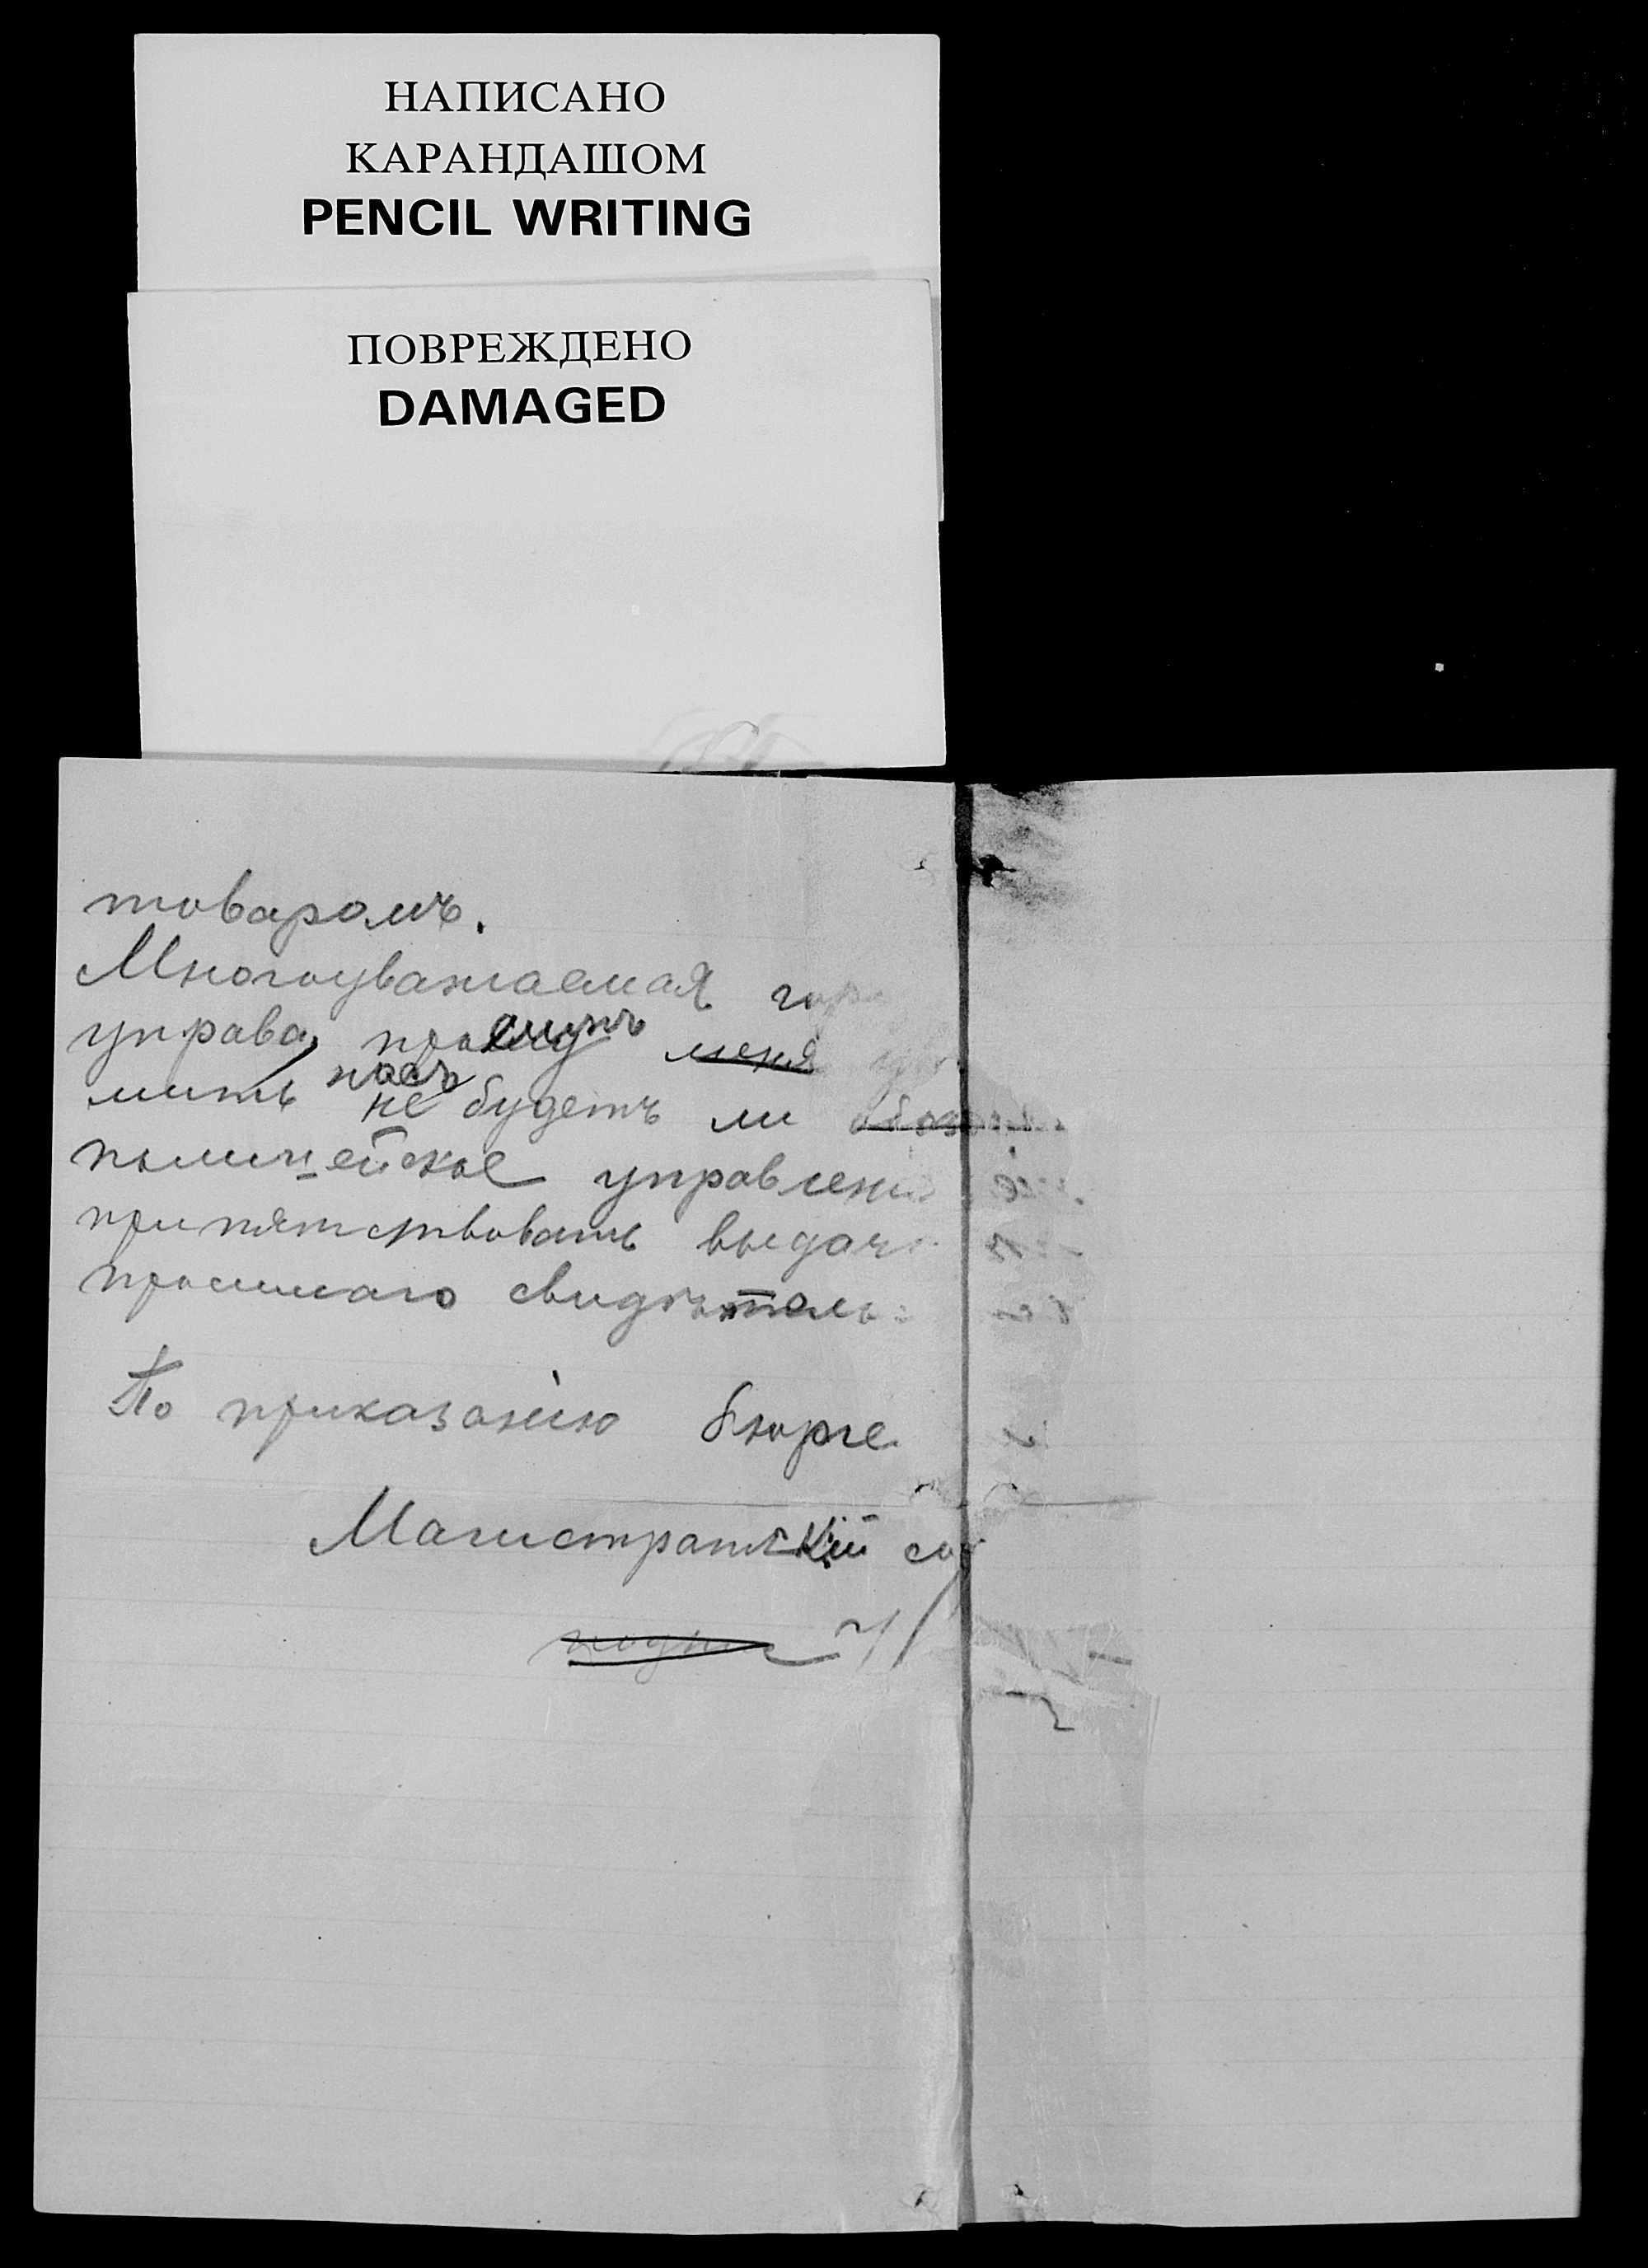 НАПИСАНО
КАРАНДАШОМ
PENCIL WRITING
ПОВРЕЖДЕНО
DAMAGED
товаромъ.
Многоуважаемая гор
управа, просимъ меня
насъ
мить не будетъ ли
полицейское управлені
припятствовать выдач
просимаго свидѣтель
По приказанію бюрге
Магистратскій сов